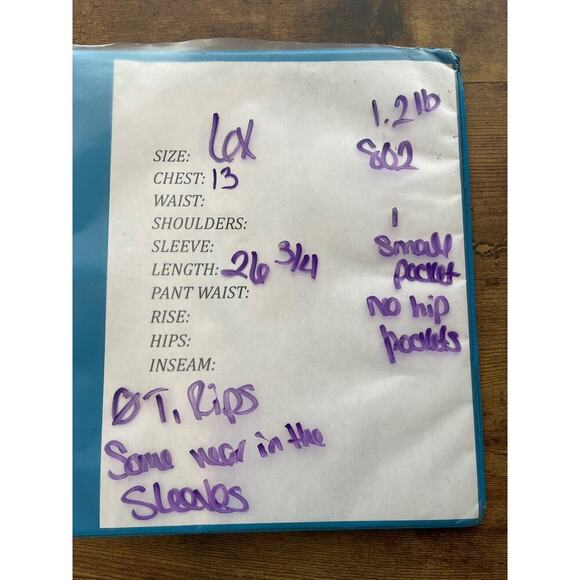 1.2lb
SIZE: 6X
8oz
CHEST: 13
WAIST:
SHOULDERS:
1
SLEEVE:
small
LENGTH: 26 3/4
pocket
PANT WAIST:
no hip
RISE:
pockets
HIPS:
INSEAM:
Ø T, Rips
Some wear in the
Sleeves